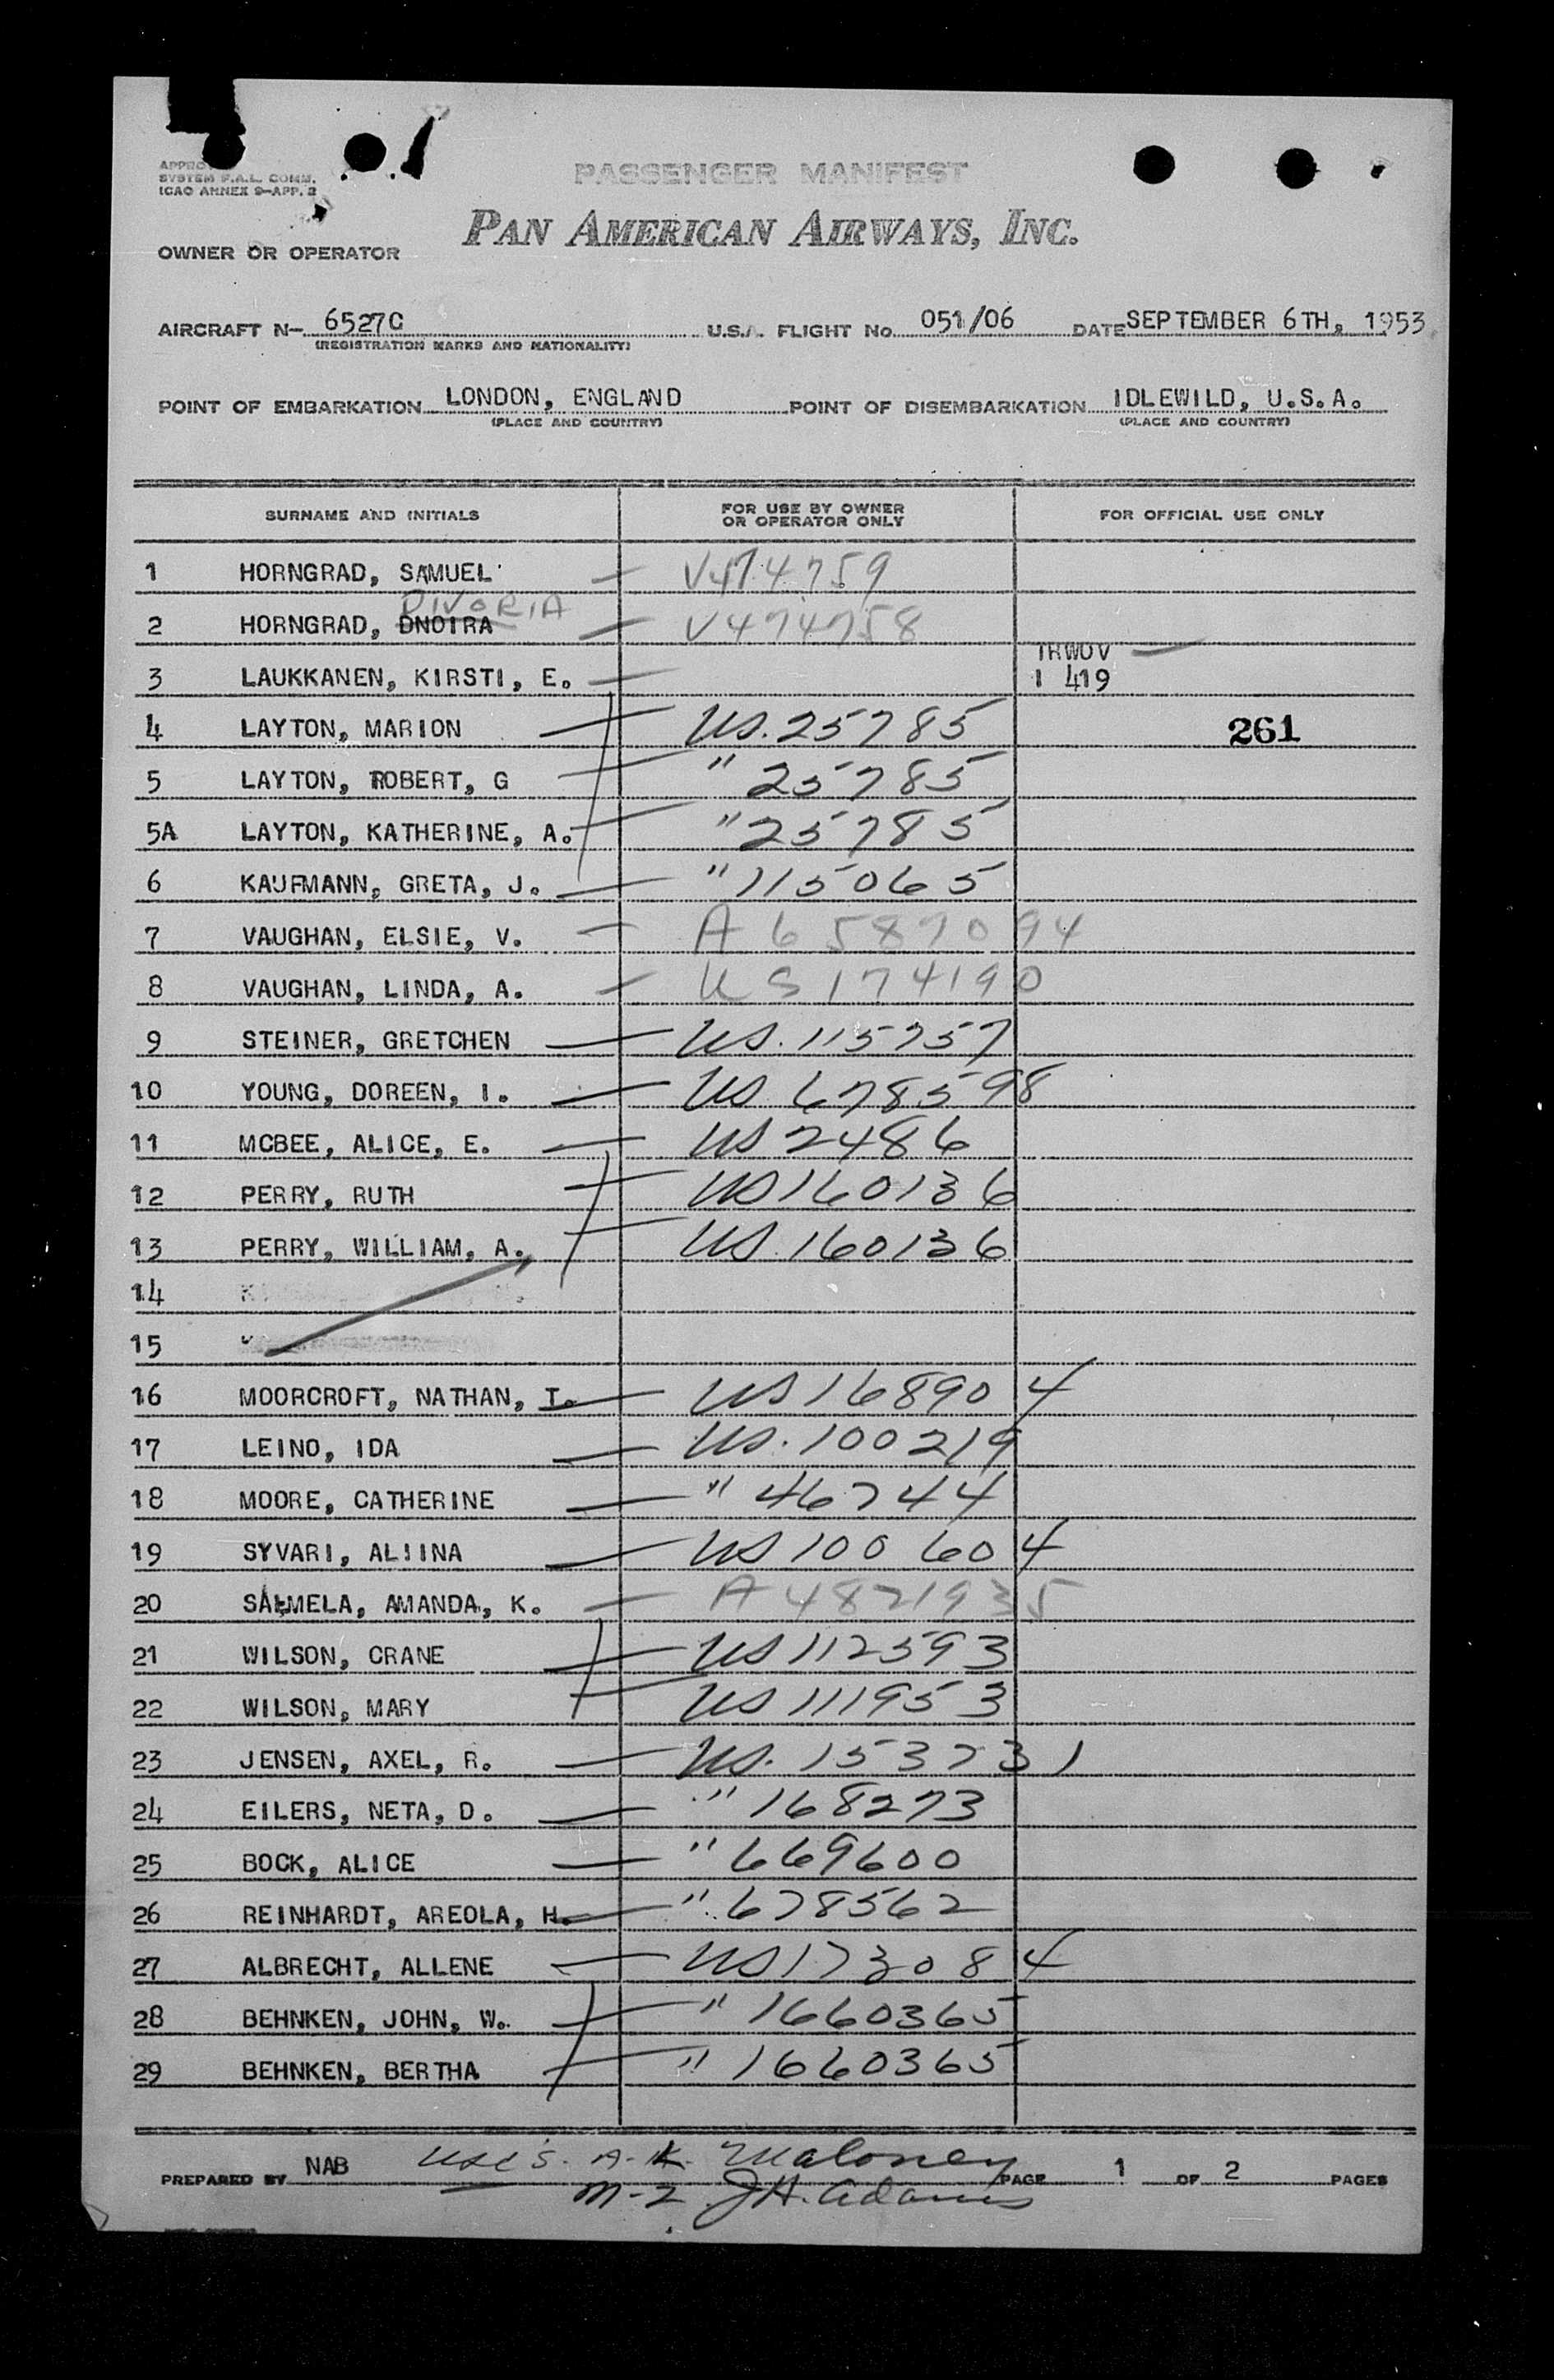 PASSENGER MANIFEST
SYSTEM F.A.L. COMM.
ICAO ANNEX 9-APP. 2
PAN AMERICAN AIRWAYS, INC.
OWNER OR OPERATOR
AIRCRAFT N- 6527C U.S.A. FLIGHT No. 051/06 DATE SEPTEMBER 6TH, 1953
(REGISTRATION MARKS AND NATIONALITY)
POINT OF EMBARKATION LONDON, ENGLAND POINT OF DISEMBARKATION IDLEWILD, U.S.A.
(PLACE AND COUNTRY) (PLACE AND COUNTRY)
SURNAME AND INITIALS FOR USE BY OWNER OR OPERATOR ONLY FOR OFFICIAL USE ONLY
1 HORNGRAD, SAMUEL — V474759
DIVORIA
2 HORNGRAD, DNOIRA — V474758
TRWOV —
3 LAUKKANEN, KIRSTI, E. — 1 419
4 LAYTON, MARION — US. 25785 261
5 LAYTON, ROBERT, G — " 25785
5A LAYTON, KATHERINE, A. — " 25785
6 KAUFMANN, GRETA, J. — " 115065
7 VAUGHAN, ELSIE, V. — A 6587094
8 VAUGHAN, LINDA, A. — US 174190
9 STEINER, GRETCHEN — US. 115757
10 YOUNG, DOREEN, I. — US 678598
11 MCBEE, ALICE, E. — US 2486
12 PERRY, RUTH — US 160136
13 PERRY, WILLIAM, A. — US. 160136
14
15
16 MOORCROFT, NATHAN, T. — US 168904
17 LEINO, IDA — US. 100219
18 MOORE, CATHERINE — " 46744
19 SYVARI, ALIINA — US 100604
20 SALMELA, AMANDA, K. — A 4821935
21 WILSON, CRANE — US 112593
22 WILSON, MARY — US 111953
23 JENSEN, AXEL, R. — US. 153731
24 EILERS, NETA, D. — " 168273
25 BOCK, ALICE — " 669600
26 REINHARDT, AREOLA, H. — " 678562
27 ALBRECHT, ALLENE — US 173084
28 BEHNKEN, JOHN, W. — " 1660365
29 BEHNKEN, BERTHA — " 1660365
PREPARED BY NAB A.K. Maloney PAGE 1 OF 2 PAGES
M-2 J.H. Adams